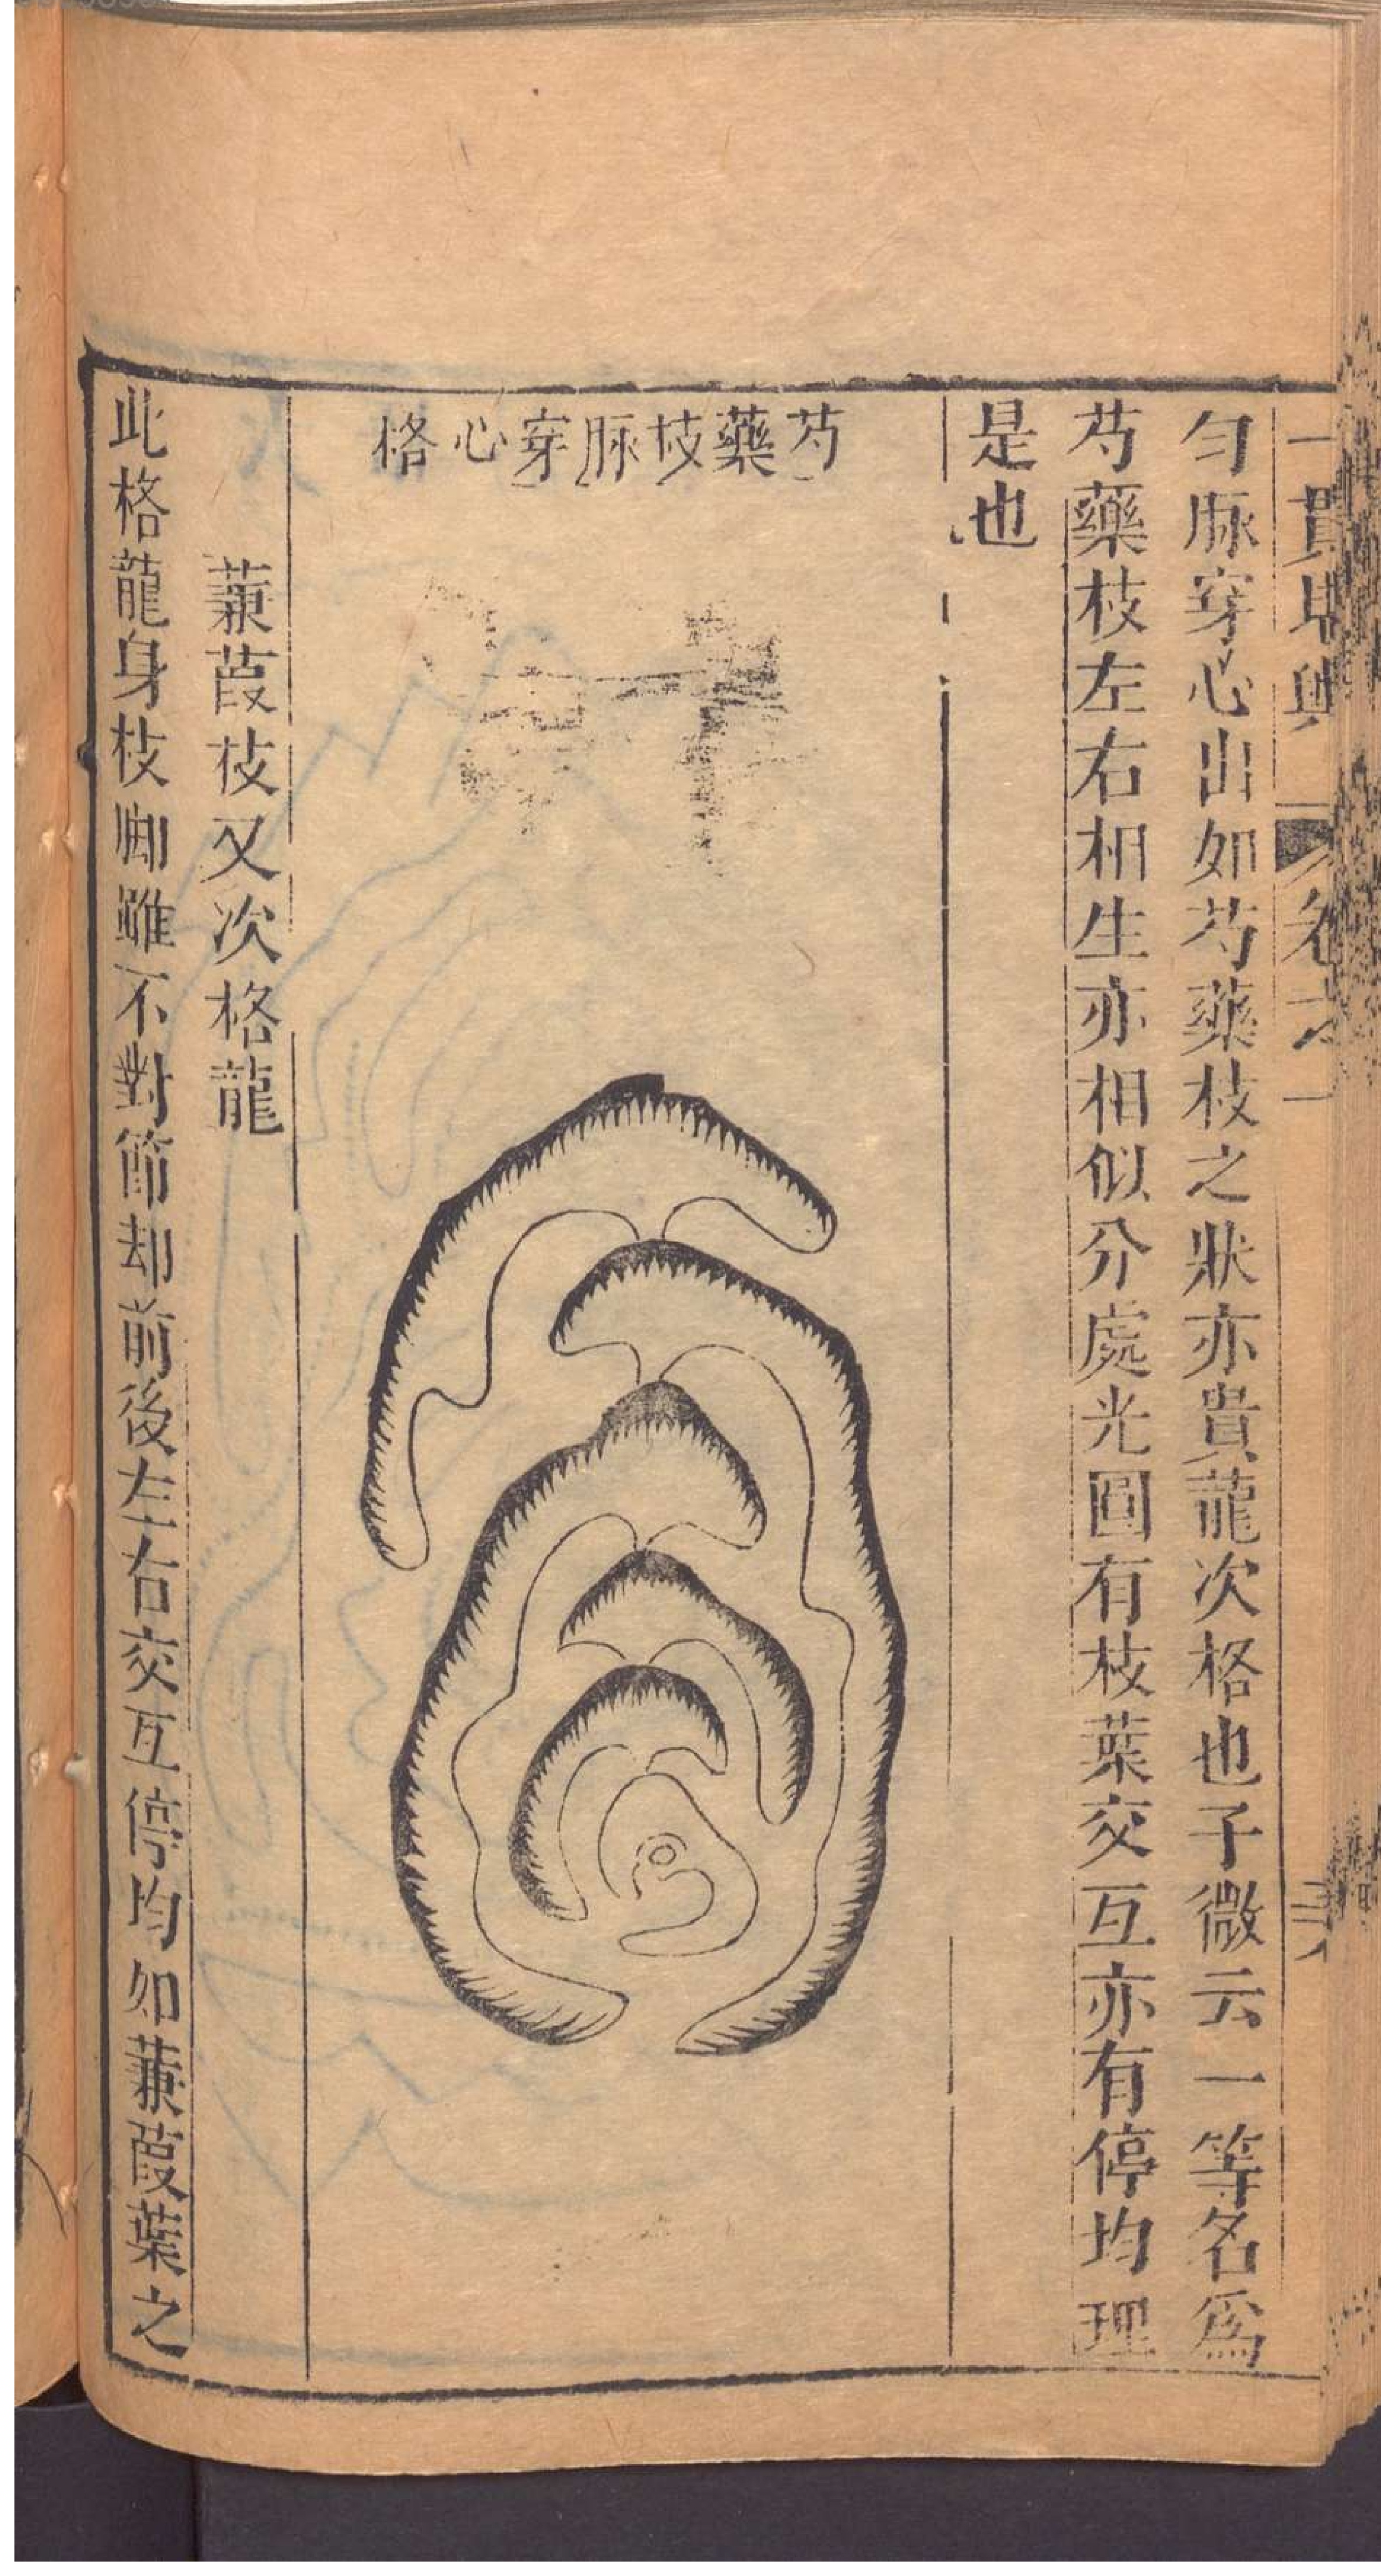 一貫堪輿 卷六
勻脉穿心出如芍藥枝之狀亦貴龍次格也子微云一等名爲
芍藥枝左右相生亦相似分處光圓有枝葉交互亦有停均理
是也
芍藥枝脉穿心格
蒹葭枝又次格龍
此格龍身枝脚雖不對節却前後左右交互停均如蒹葭葉之